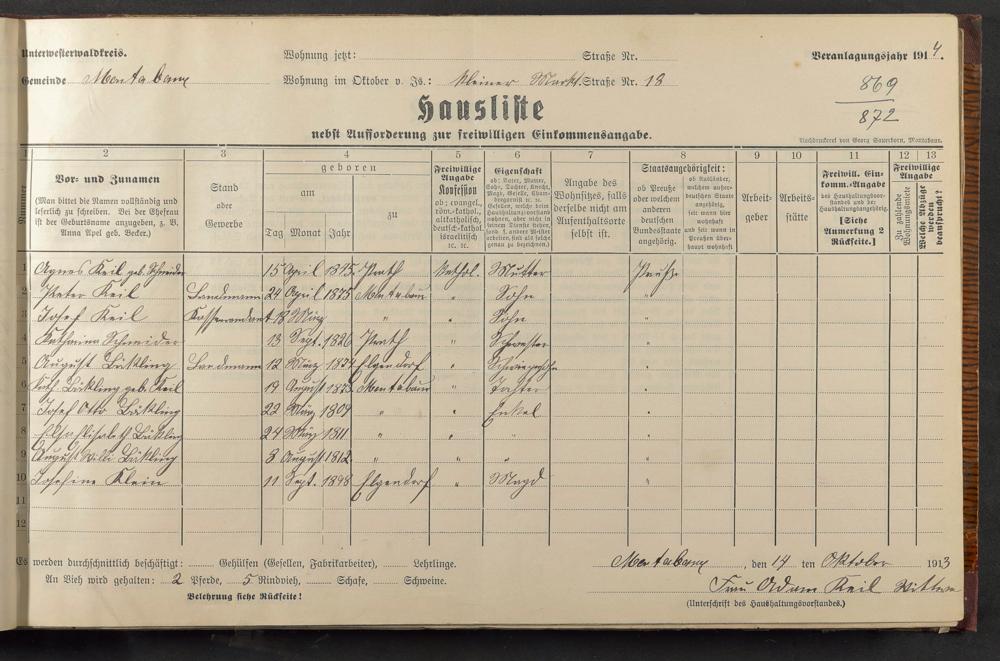 Unterwesterwaldkreis. Wohnung jetzt: Straße Nr. Veranlagungsjahr 1914.
Gemeinde Montabaur Wohnung im Oktober v. Js.: Kleiner Markt Straße Nr. 18
869
872
Hausliste
nebst Aufforderung zur freiwilligen Einkommensangabe.
Buchdruckerei von Georg Sauerborn, Montabaur.
1 2 3 4 5 6 7 8 9 10 11 12 13
Nummer
Vor- und Zunamen
(Man bittet die Namen vollständig und
leserlich zu schreiben. Bei der Ehefrau
ist der Geburtsname anzugeben, z. B.
Anna Apel geb. Becker.)
Stand
oder
Gewerbe
geboren
am
Tag Monat Jahr
zu
Freiwillige
Angabe
Konfession
ob: evangel.,
röm.-kathol.,
altkatholisch,
deutsch-kathol.
israelitisch
ec. ec.
Eigenschaft
ob: Vater, Mutter,
Sohn, Tochter, Knecht,
Magd, Geselle, Cham-
bregarnist ec.
Angabe des
Wohnsitzes, falls
derselbe nicht am
Aufenthaltsorte
selbst ist.
Staatsangehörigkeit:
ob Preuße
oder welchem
anderen
deutschen
Bundesstaate
angehörig.
ob Ausländer,
welchem außer-
deutschen Staate
angehörig,
seit wann hier
wohnhaft
und seit wann in
Preußen über-
haupt wohnhaft
Arbeit-
geber
Arbeits-
stätte
Freiwill. Ein-
komm.-Angabe
des Haushaltungsvor-
standes und der
Haushaltungsangehörig.
[Siehe
Anmerkung 2
Rückseite.]
Freiwillige
Angabe
Zu zahlende
Wohnungsmiete
Welche Abzüge
werden
beansprucht?
1 Agnes Keil geb. Schneider 15 April 1875 Kathol. Mutter Preuße
2 Peter Keil Landmann 24 April 1875 Montabaur " Sohn "
3 Josef Keil 18 März " " Sohn "
4 Katharina Schneider 13 Sept. 1826 " Schwester "
5 August Landmann 12 März 1874 Elgendorf " "
6 geb. Keil 19 August 1873 Montabaur " Tochter "
7 Josef Otto 22 März 1809 " " Enkel "
8 24 März 1811 " " " "
9 August Willi 3 August 1812 " " " "
10 Josefine Klein 11 Sept. 1898 Elgendorf " Magd "
11
12
Es werden durchschnittlich beschäftigt: Gehülfen (Gesellen, Fabrikarbeiter), Lehrlinge.
An Vieh wird gehalten: 2 Pferde, 5 Rindvieh, Schafe, Schweine.
Belehrung siehe Rückseite!
Montabaur, den 14 ten Oktober 1913
Frau Adam Keil Wittwe
(Unterschrift des Haushaltungsvorstandes.)